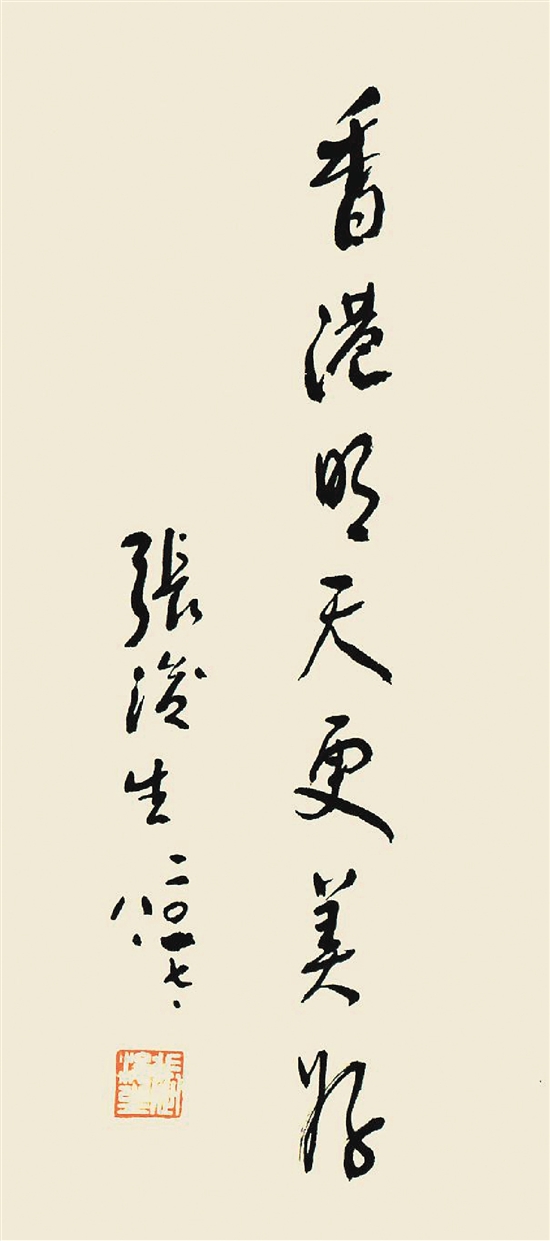 香港明天更美好
張浚生
二〇一七.
八.